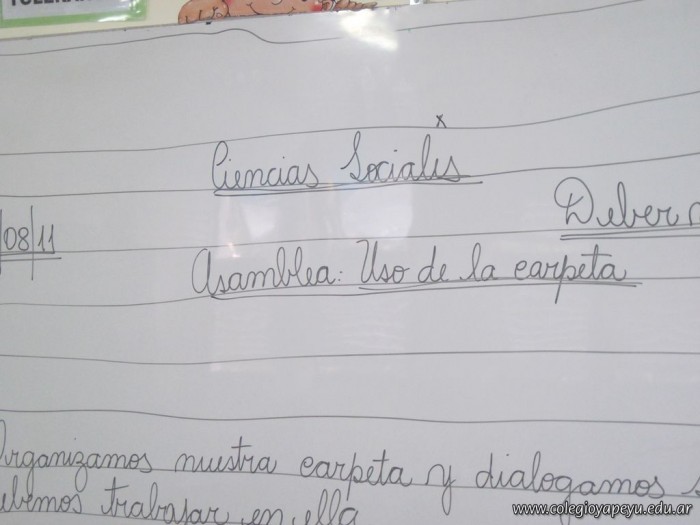 TOLERAN
x
Ciencias Sociales
Deber
08|11
Asamblea: Uso de la carpeta
Organizamos nuestra carpeta y dialogamos
debemos trabajar en ella
www.colegioyapeyu.edu.ar